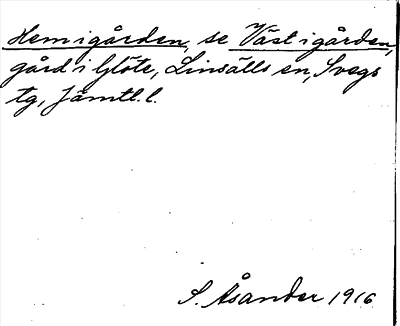 Hemigården, se Väst i gården,
gård i Glöte, Linsälls sn, Svegs
tg, Jämtl. l.
S. Åsander 1916